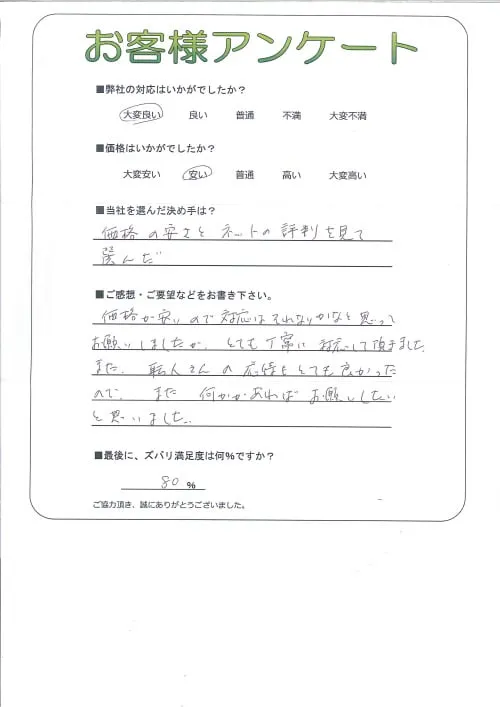 お客様アンケート
■弊社の対応はいかがでしたか？
大変良い 良い 普通 不満 大変不満
■価格はいかがでしたか？
大変安い 安い 普通 高い 大変高い
■当社を選んだ決め手は？
価格の安さとネットの評判を見て
選んだ
■ご感想・ご要望などをお書き下さい。
価格が安いので対応はそれなりかなと思って
お願いしましたが、とても丁寧に対応して頂きました。
また、職人さんの応待もとても良かった
ので、また何かあればお願いしたい
と思いました。
■最後に、ズバリ満足度は何％ですか？
80 ％
ご協力頂き、誠にありがとうございました。